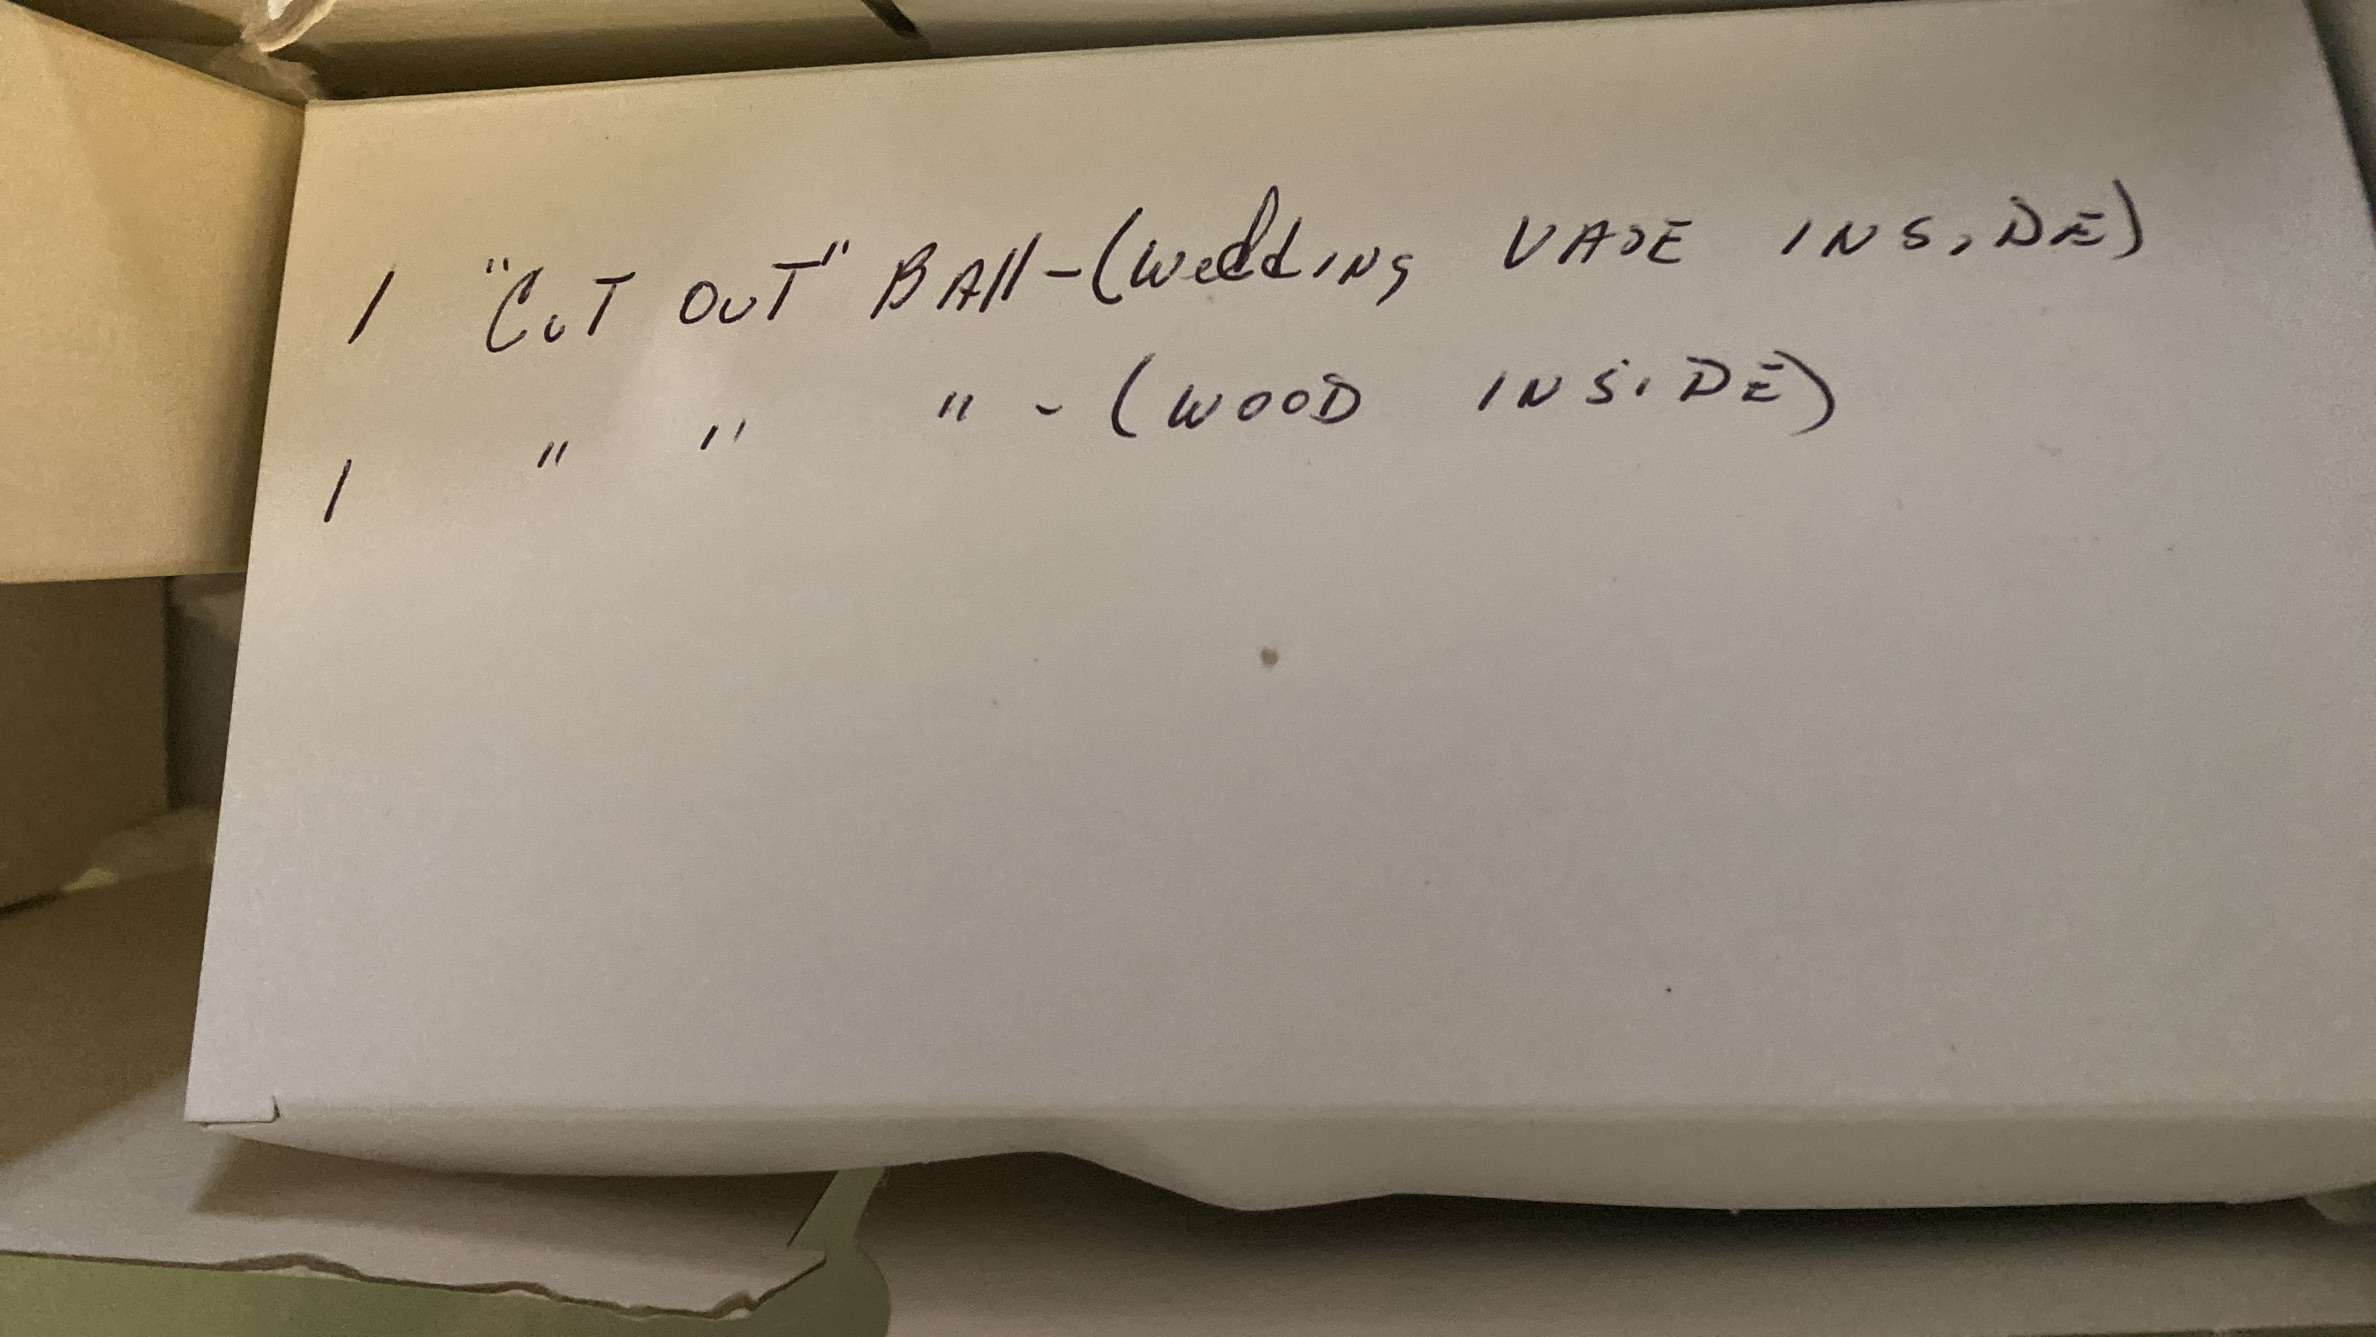 1 "CUT OUT" BAll - (Wedding VASE INSIDE)
1 " " " - (WOOD INSIDE)